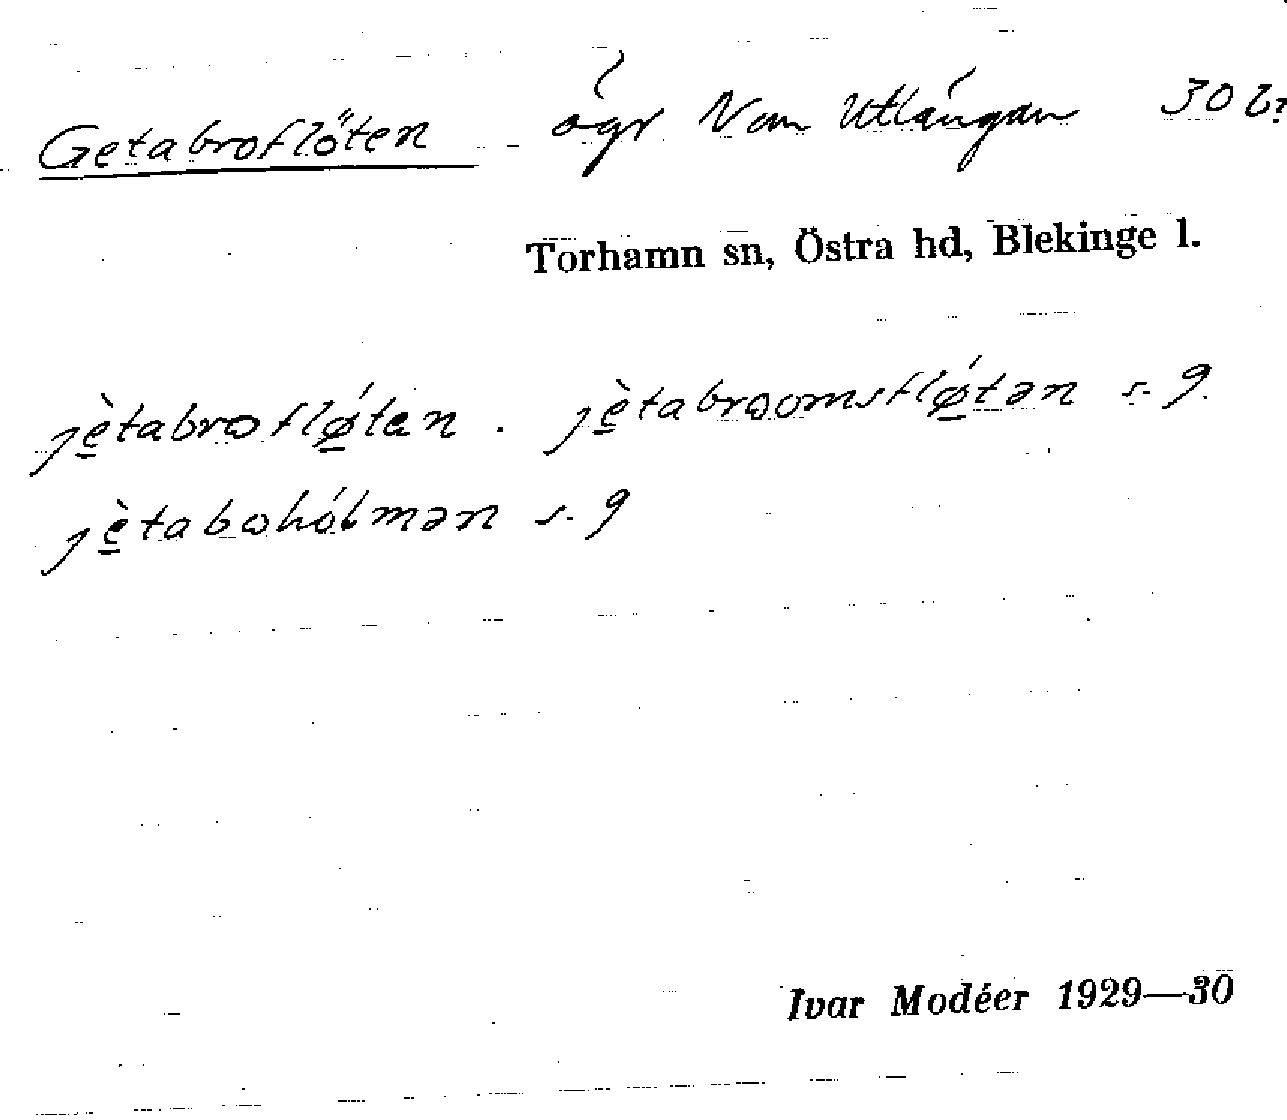 Getabroflöten ögr N om Utlångan 30 b.
Torhamn sn, Östra hd, Blekinge l.
jètabrofló̱tan . jètabroomsflǿtən s. 9.
jètabohólmən s. 9
Ivar Modéer 1929—30